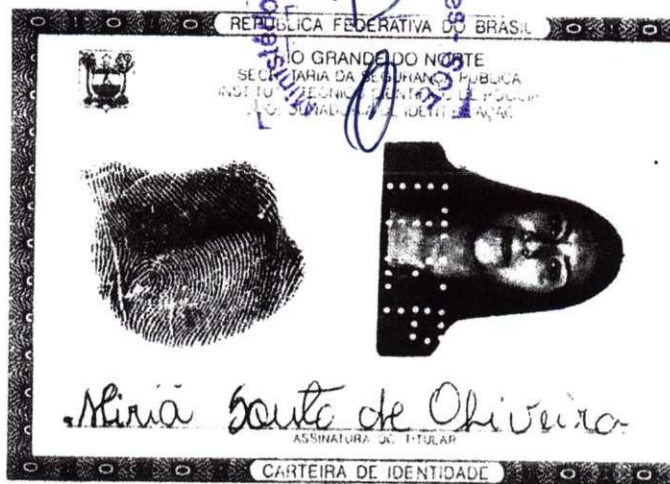 REPÚBLICA FEDERATIVA DO BRASIL
IO GRANDE DO NORTE
SECRETARIA DA SEGURANÇA PÚBLICA
DE IDENTIFICAÇÃO
Miriã Souto de Oliveira
ASSINATURA DO TITULAR
CARTEIRA DE IDENTIDADE